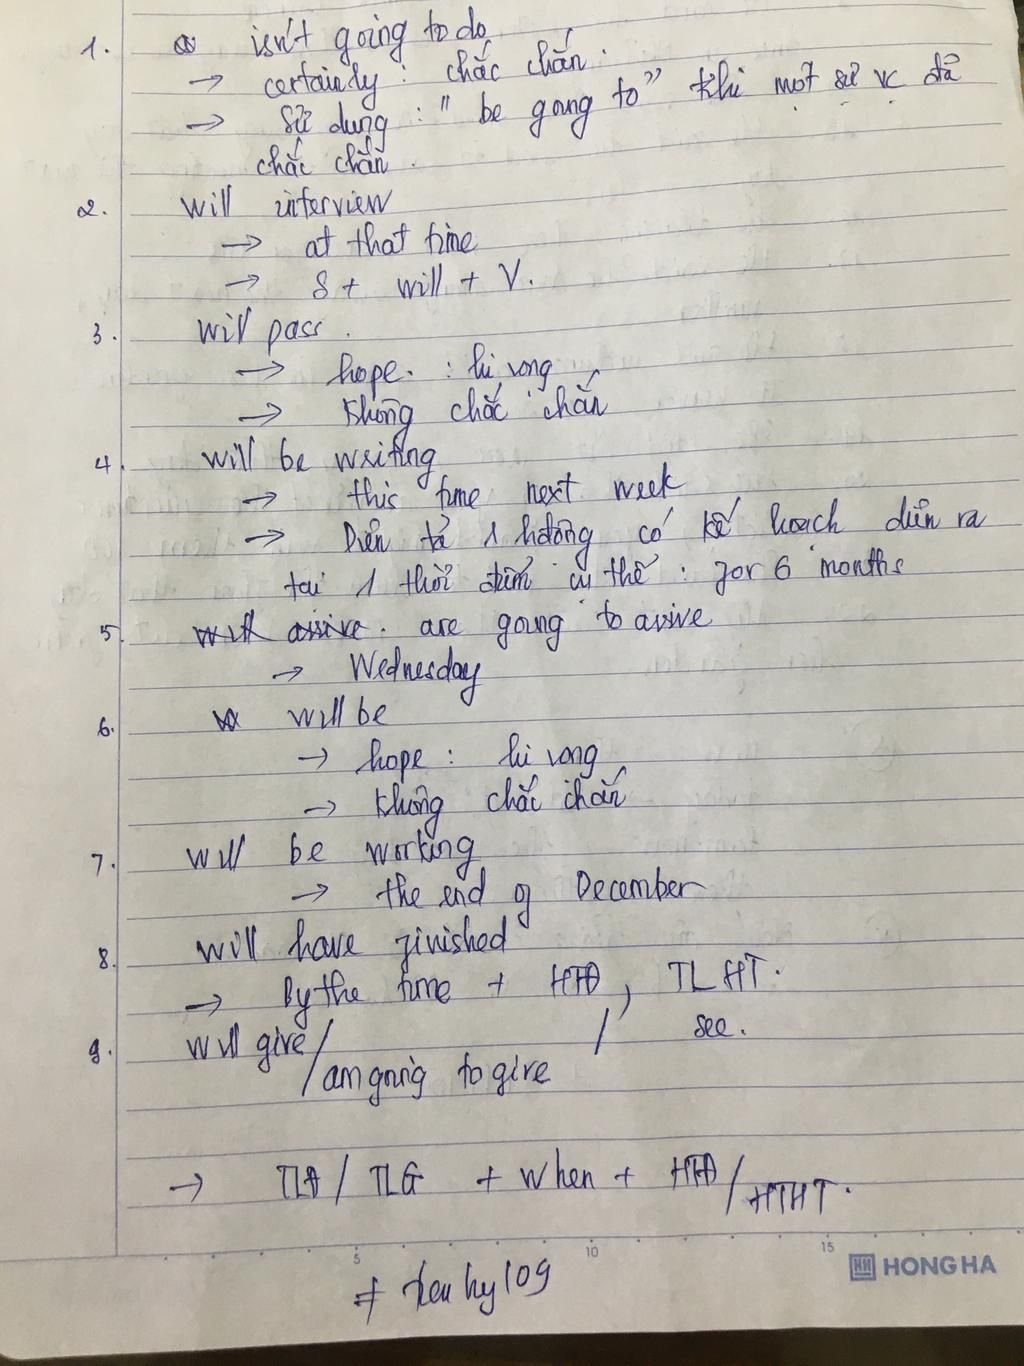 1. isn't going to do
→ certainly : chắc chắn.
→ Sử dụng : " be going to" khi một sự vc đã
chắc chắn.
2. will interview
→ at that time
→ S + will + V.
3. will pass.
→ hope. : hi vọng
→ không chắc chắn
4. will be writing
→ this time next week
→ Diễn tả 1 hđông có kế hoạch diễn ra
tại 1 thời điểm cụ thể : for 6 months
5. will arrive. are going to arive
→ Wednesday
6. will be
→ hope : hi vọng
→ không chắc chắn
7. will be working
→ the end of December
8. will have finished
→ By the time + HTĐ, TLHT.
9. will give/ / see.
/am going to give
→ TLĐ/ TLG + when + HTĐ/HTHT.
5 10 15
HONG HA